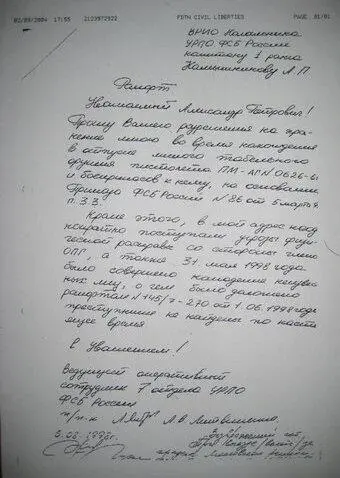 02/03/2004 17:55 2123972922 FDTN CIVIL LIBERTIES PAGE 01/01
ВРИО Начальника
УРПО ФСБ России
капитану 1 ранга
Камышникову А.П.
Рапорт
Уважаемый Александр Петрович!
Прошу Вашего разрешения на хра-
нение мною во время нахождения
в отпуске личного табельного
оружия пистолета ПМ-АГ№0626-61
и боеприпасов к нему, на основании
Приказа ФСБ России №85 от 5 марта
п. 3.3.
Кроме этого, в мой адрес неод
нократно поступали угрозы физи-
ческой расправы со стороны члено
ОПГ, а также 31 мая 1998 года
было совершено нападение неизвес
ных лиц, о чем было доложено
рапортом №145/7-270 от 1.06.1998 года
преступники не найдены по наст
ящее время
С Уважением!
Ведущий оперативный
сотрудник 7 отдела УРПО
ФСБ России
п/п-к А.В. Литвиненко